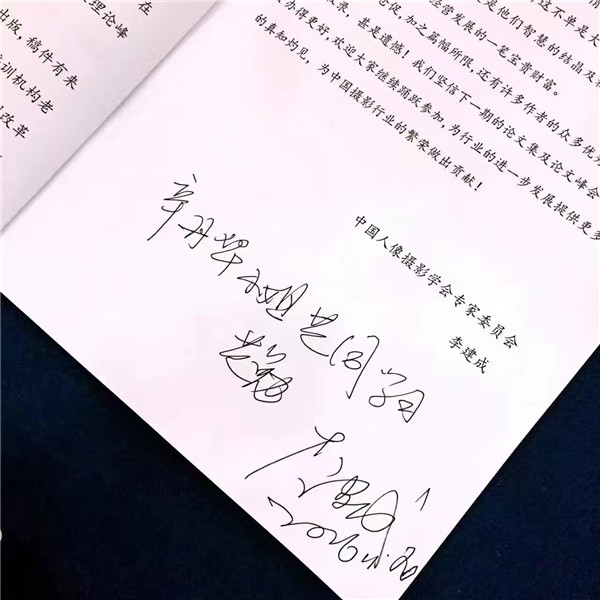 在
理论峰
出版，稿件有来
培训机构老
改革
这不单是大
是他们智慧的结晶及
经营发展的一笔宝贵财富。
促，加之篇幅所限，还有许多作者的众多优
录，甚是遗憾！我们坚信下一期的论文集及论文峰会
办得更好，欢迎大家继续踊跃参加，为行业的进一步发展提供更多
的真知灼见，为中国摄影行业的繁荣做出贡献！
中国人像摄影学会专家委员会
李建成
共同学习
共勉
李建成